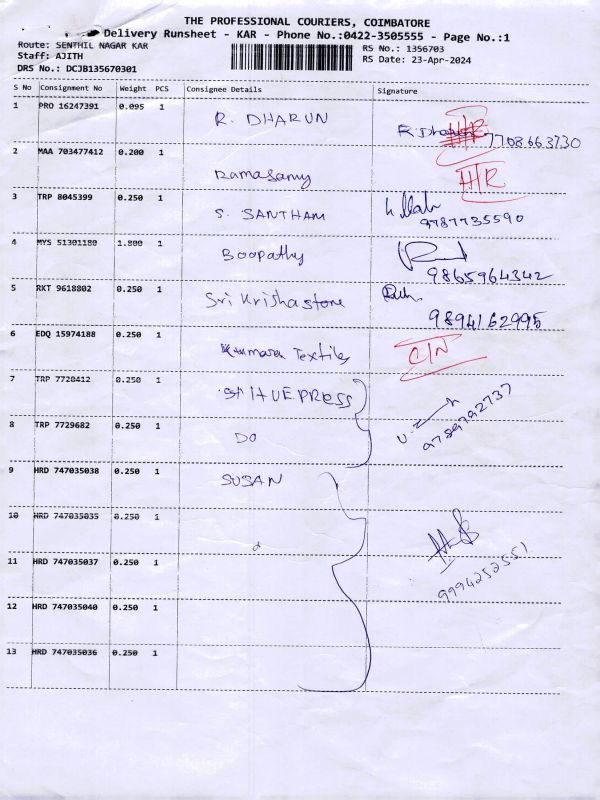 THE PROFESSIONAL COURIERS, COIMBATORE
Delivery Runsheet - KAR - Phone No.:0422-3505555 - Page No.:1
Route: SENTHIL NAGAR KAR RS No.: 1356703
Staff: AJITH RS Date: 23-Apr-2024
DRS No.: DCJB135670301
S No Consignment No Weight PCS Consignee Details Signature
1 PRO 16247391 0.095 1 R. DHARUN R. Dharun H/R 7708663730
2 MAA 703477412 0.200 1 Ramasamy H/R
3 TRP 8045399 0.250 1 S. SANTHAM 9787735590
4 MYS 51301180 1.800 1 Boopathy 9865964342
5 RKT 9618802 0.250 1 Sri Krishastone 9894162995
6 EDQ 15974188 0.250 1 Kumara Textiles C/N
7 TRP 7728412 0.250 1
8 TRP 7729682 0.250 1 DO 9789792737
9 HRD 747035038 0.250 1 SUSAN
10 HRD 747035035 0.250 1
11 HRD 747035037 0.250 1 9994252551
12 HRD 747035040 0.250 1
13 HRD 747035036 0.250 1